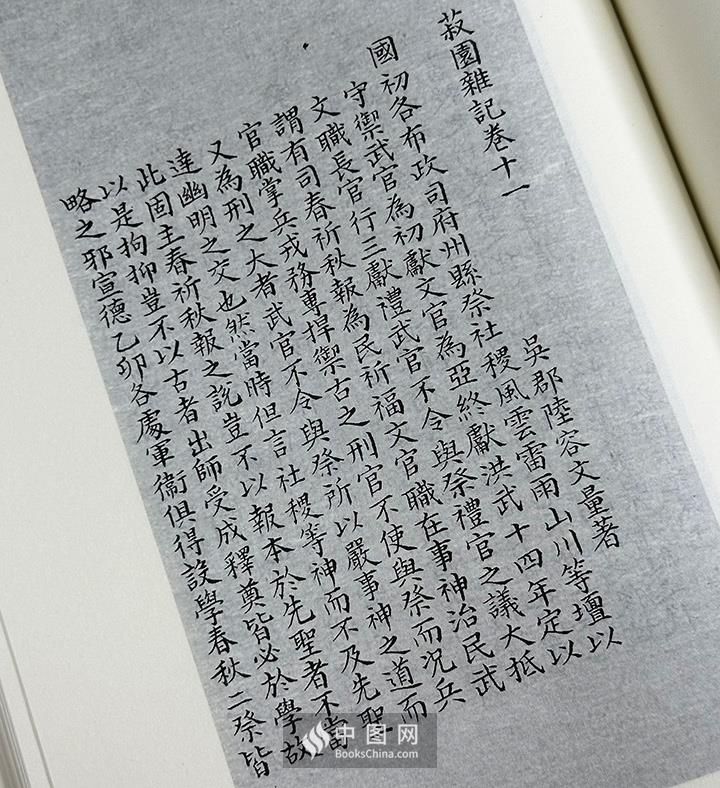 菽園雜記卷十一
吳郡陸容文量著
國初各布政司府州縣祭社稷風雲雷雨山川等壇以
守禦武官為初獻文官為亞終獻洪武十四年定以
文職長官行三獻禮武官不令與祭禮官之議大抵
謂有司春祈秋報為民祈福文官職在事神治民武
官職掌兵戎務專捍禦古之刑官不使與祭而況兵
又為刑之大者武官不令與祭所以嚴事神之道而
達幽明之交也然當時但言社稷等神而不及先聖
此固主春祈秋報之說豈不以報本於先聖者不當
以是拘抑豈不以古者出師受成釋奠皆必於學故
略之邪宣德乙卯各處軍衛俱得設學春秋二祭皆
中图网
BooksChina.com